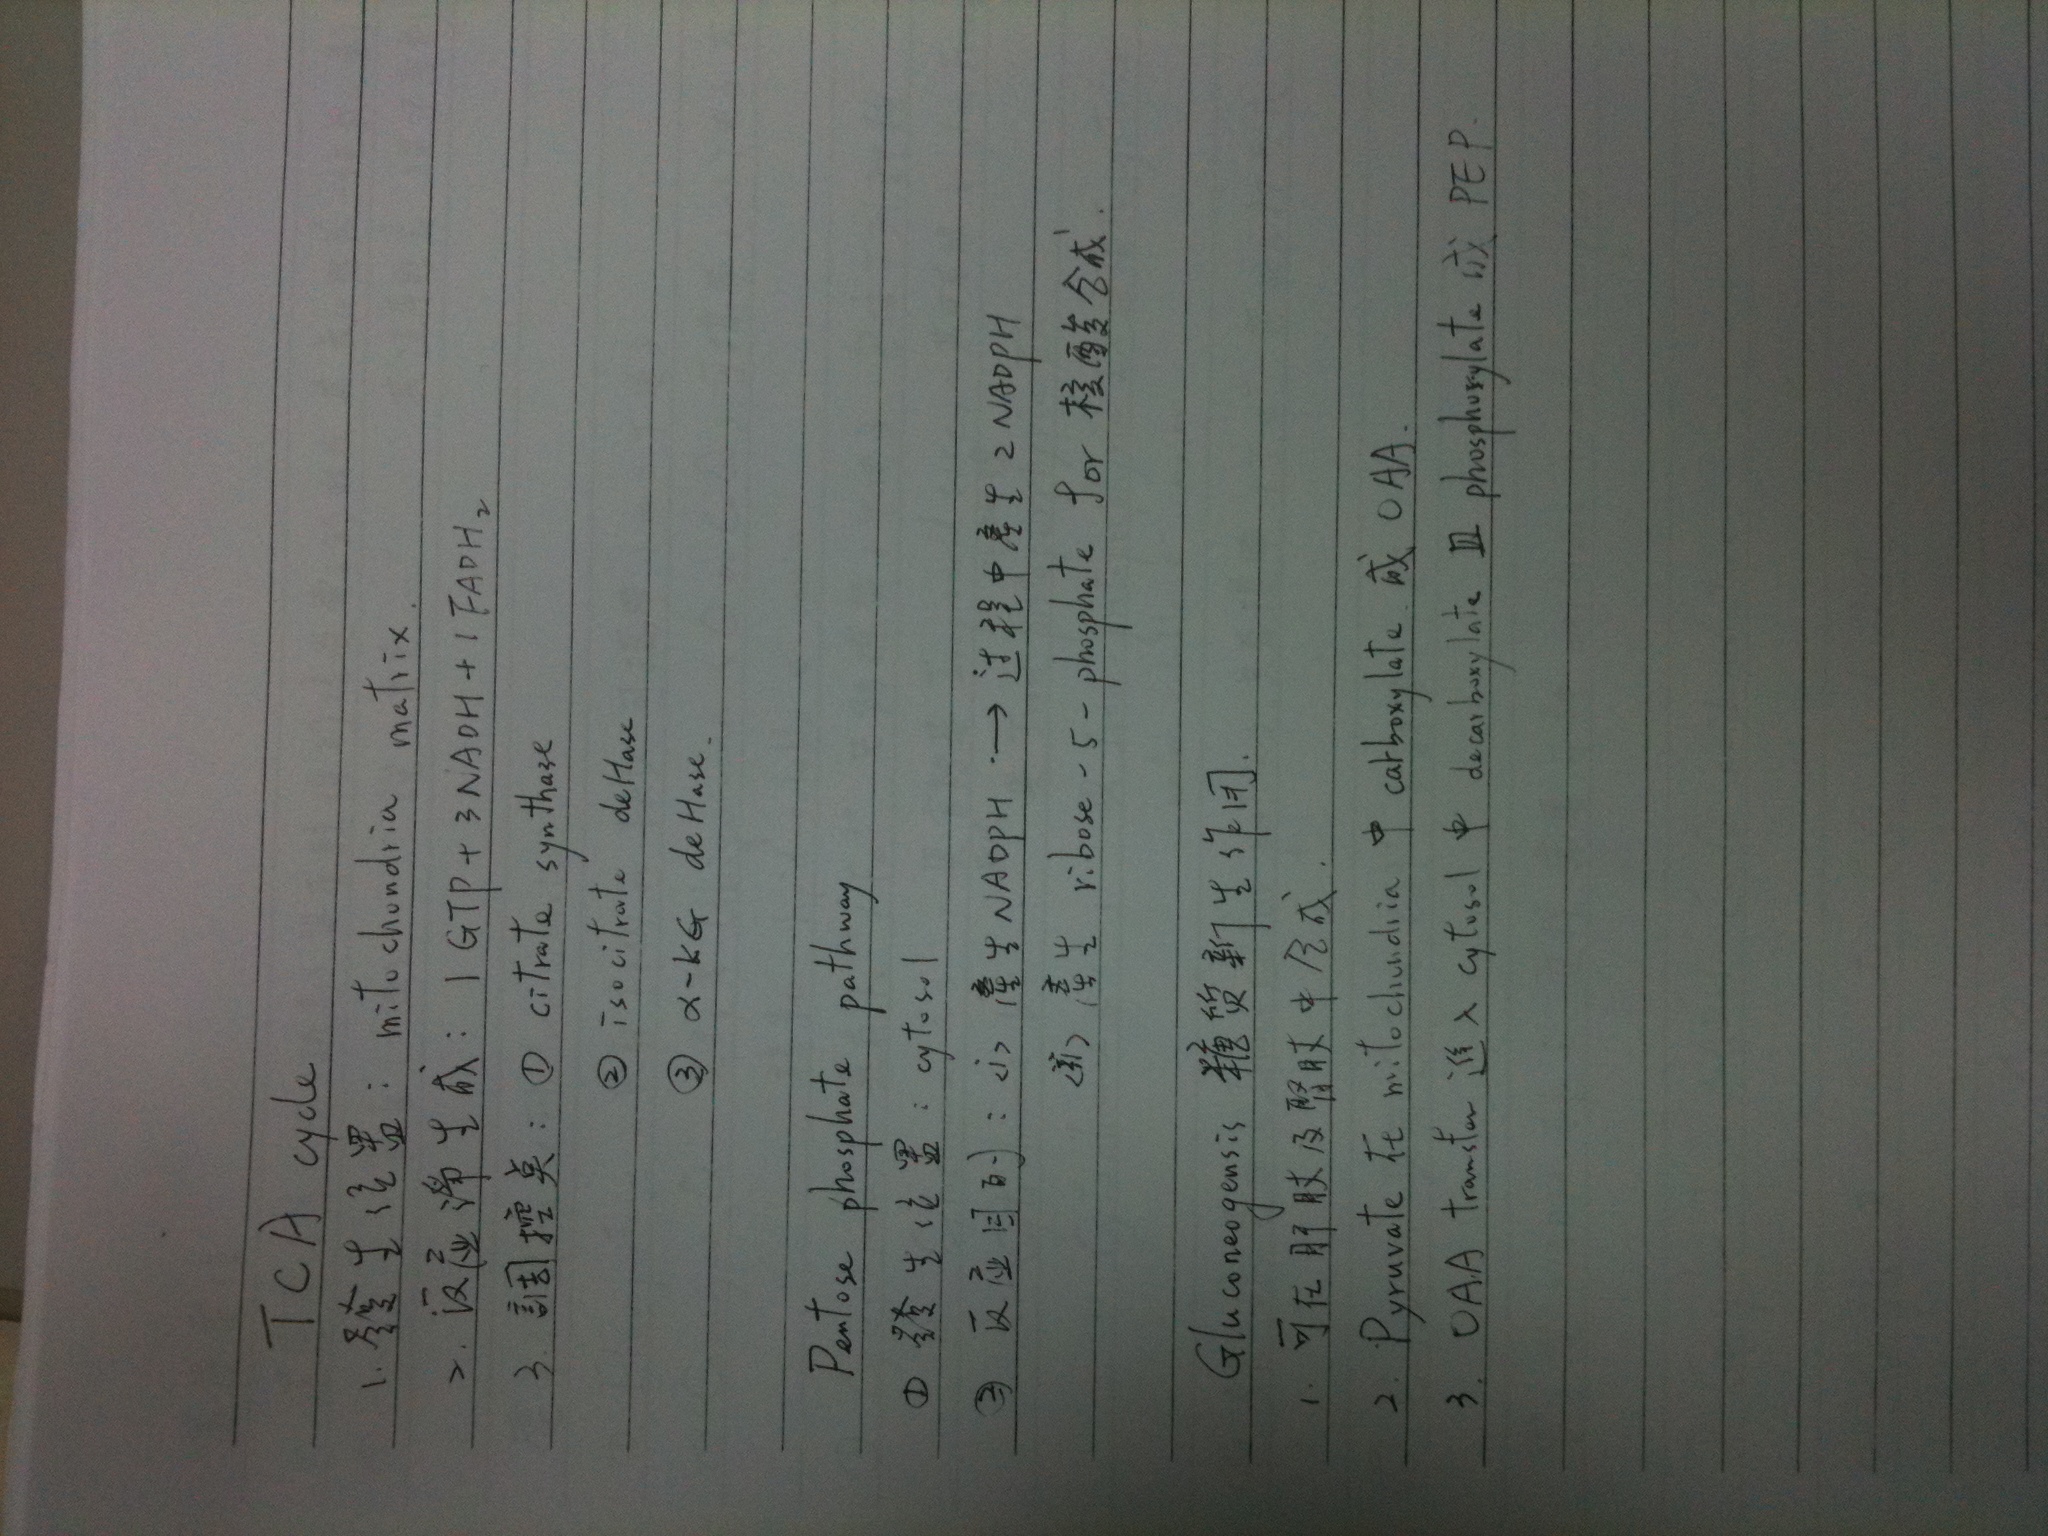 TCA cycle
1. 發生位置: mitochondria matrix.
2. 反應淨生成: 1 GTP + 3 NADH + 1 FADH₂
3. 調控点: ① citrate synthase
② isocitrate deHase
③ α-KG deHase.
Pentose phosphate pathway
① 發生位置: cytosol
② 反應目的: (i) 產生 NADPH → 过程中產生 2 NADPH
(ii) 產生 ribose-5-phosphate for 核苷酸合成.
Gluconeogensis 糖質新生作用.
1. 可在肝脏及腎脏中合成.
2. Pyruvate 在 mitochondria 中 carboxylate 成 OAA.
3. OAA transfer 進入 cytosol 中 decarboxylate 且 phosphorylate 成 PEP.